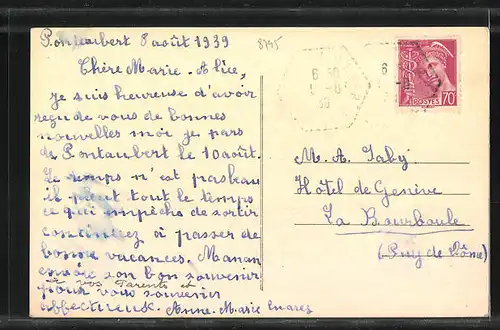 Pontaubert 8 août 1939
8745
Chère Marie-Alice,
je suis heureuse d'avoir
reçu de vous de bonnes
nouvelles moi je pars
de Pontaubert le 10 août.
Le temps n'est pas beau
il pleut tout le temps
ce qui empêche de sortir
continuez à passer de
bonne vacances. Maman
envoie son bon souvenir
à vos Parents et
pour vous souvenir
affectueux. Anne-Marie
6 30
9 -8
39
6
POSTES 70
M. A. Jaby
Hôtel de Genève
La Bourboule
(Puy de Dôme)